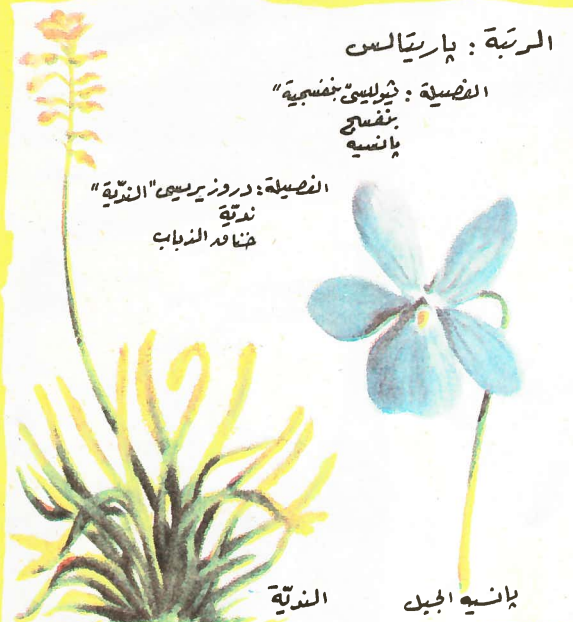 الرتبة : پاريتالس
الفصيلة : ڤيولليسيّ بنفسجية"
بنفسج
پانسيه
الفصيلة : دروزيريسي "النديّة"
نديّة
خناق الذباب
النديّة
پانسيه الجبل